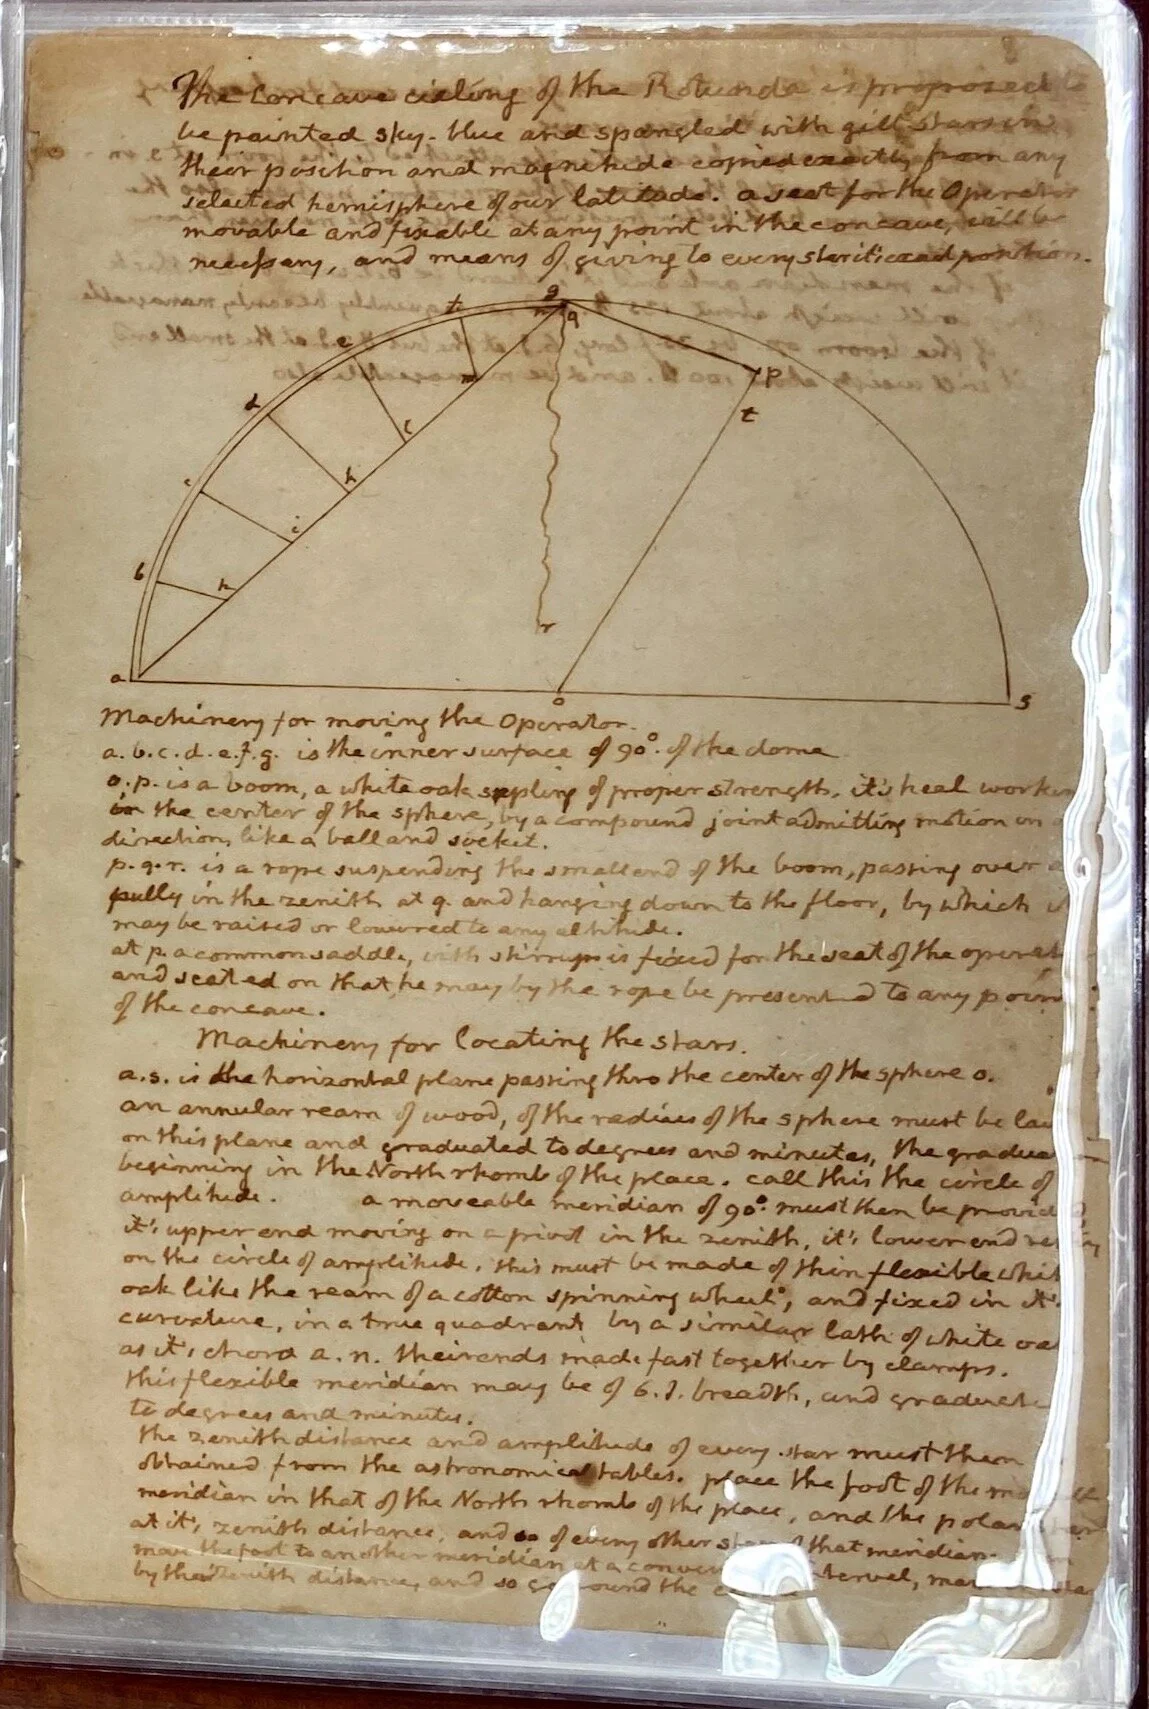 The Concave cieling of the Rotunda is proposed to
be painted sky-blue and spangled with gilt stars in
their position and magnitude copied exactly from any
selected hemisphere of our latitude. a seat for the Operator
movable and fixable at any point in the concave, will be
necessary, and means of giving to every star it's exact position.
g
f
q
e
p
t
d
l
m
h
c
i
b
h
r
a
o
s
Machinery for moving the Operator.
a. b. c. d. e. f. g. is the inner surface of 90°. of the dome
o. p. is a boom, a white oak sapling of proper strength, it's heal working
in the center of the sphere, by a compound joint admitting motion in
direction, like a ball and socket.
p. q. r. is a rope suspending the small end of the boom, passing over a
pully in the zenith at q. and hanging down to the floor, by which it
may be raised or lowered to any altitude.
at p. a common saddle, with stirrups is fixed for the seat of the operator
and seated on that, he may by the rope be presented to any point
of the concave.
Machinery for locating the stars.
a. s. is the horizontal plane passing thro the center of the sphere o.
an annular ream of wood, of the radius of the sphere must be laid
on this plane and graduated to degrees and minutes, the
beginning in the North rhomb of the place. call this the circle of
amplitude. a moveable meridian of 90°. must then be provided
it's upper end moving on a pivot in the zenith, it's lower end
on the circle of amplitude. this must be made of thin flexible white
oak like the ream of a cotton spinning wheel, and fixed in it's
curvature, in a true quadrant by a similar lath of white oak
as it's chord a. n. their ends made fast together by clamps.
this flexible meridian may be of 6. I. breadth, and graduated
to degrees and minutes.
the zenith distance and amplitude of every star must then
obtained from the astronomical tables. place the foot of the
meridian in that of the North rhomb of the place, and the polar star
at it's zenith distance, and so of every other star of that meridian.
move the foot to another meridian at a convenient interval, mark
by their zenith distance, and so go round the